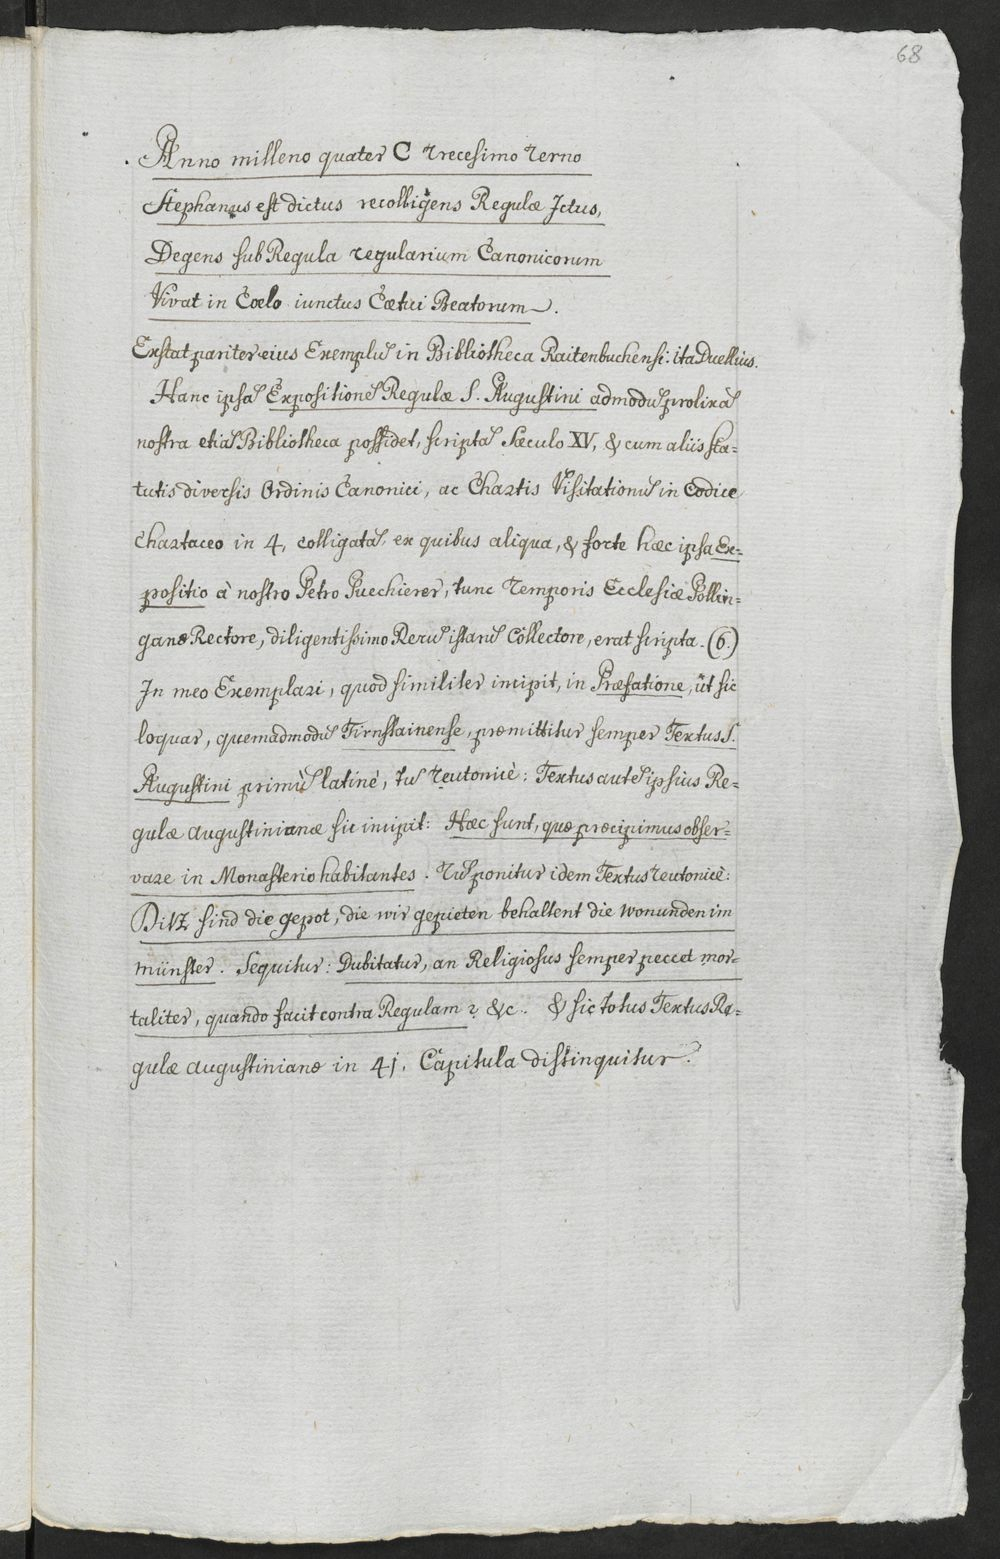 68
Anno milleno quater C trecesimo terno
Stephanus est dictus recolligens Regulæ Ictus,
Degens sub Regula regularium Canonicorum
Vivat in Cœlo iunctus Cœtui Beatorum.
Exstat pariter eius Exemplu͂ in Bibliotheca Raitenbuchensi: ita Duellius.
Hanc ipsa͂ Expositione͂ Regulæ S. Augustini admodu͂ prolixa͂
nostra etia͂ Bibliotheca possidet, scripta͂ Sæculo XV, & cum aliis sta=
tutis diversis Ordinis Canonici, ac Chartis Visitationu͂ in Codice
Chartaceo in 4, colligata͂, ex quibus aliqua, & forte hæc ipsa Ex=
positio à nostro Petro Puechierer, tunc temporis Ecclesiæ Pollin=
ganæ Rectore, diligentissimo Reru͂ istaru͂ Collectore, erat scripta. (6.)
In meo Exemplari, quod similiter incipit, in Præfatione, üt sic
loquar, quemadmodu͂ Tirnstainense, præmittitur semper Textus S.
Augustini primu͂ latinè, tu͂ teutonicè: Textus aute͂ ipsius Re=
gulæ augustinianæ sic incipit: Hæc sunt, quæ præcipimus obser=
vare in Monasterio habitantes. Tu͂ ponitur idem Textus teutonicè:
Ditz sind die gepot, die wir gepieten behaltent die wonunden im
münster. Sequitur: Dubitatur, an Religiosus semper peccet mor=
taliter, quando facit contra Regulam? &c. & sic totus Textus Re=
gulæ augustinianæ in 41. Capitula distinquitur.